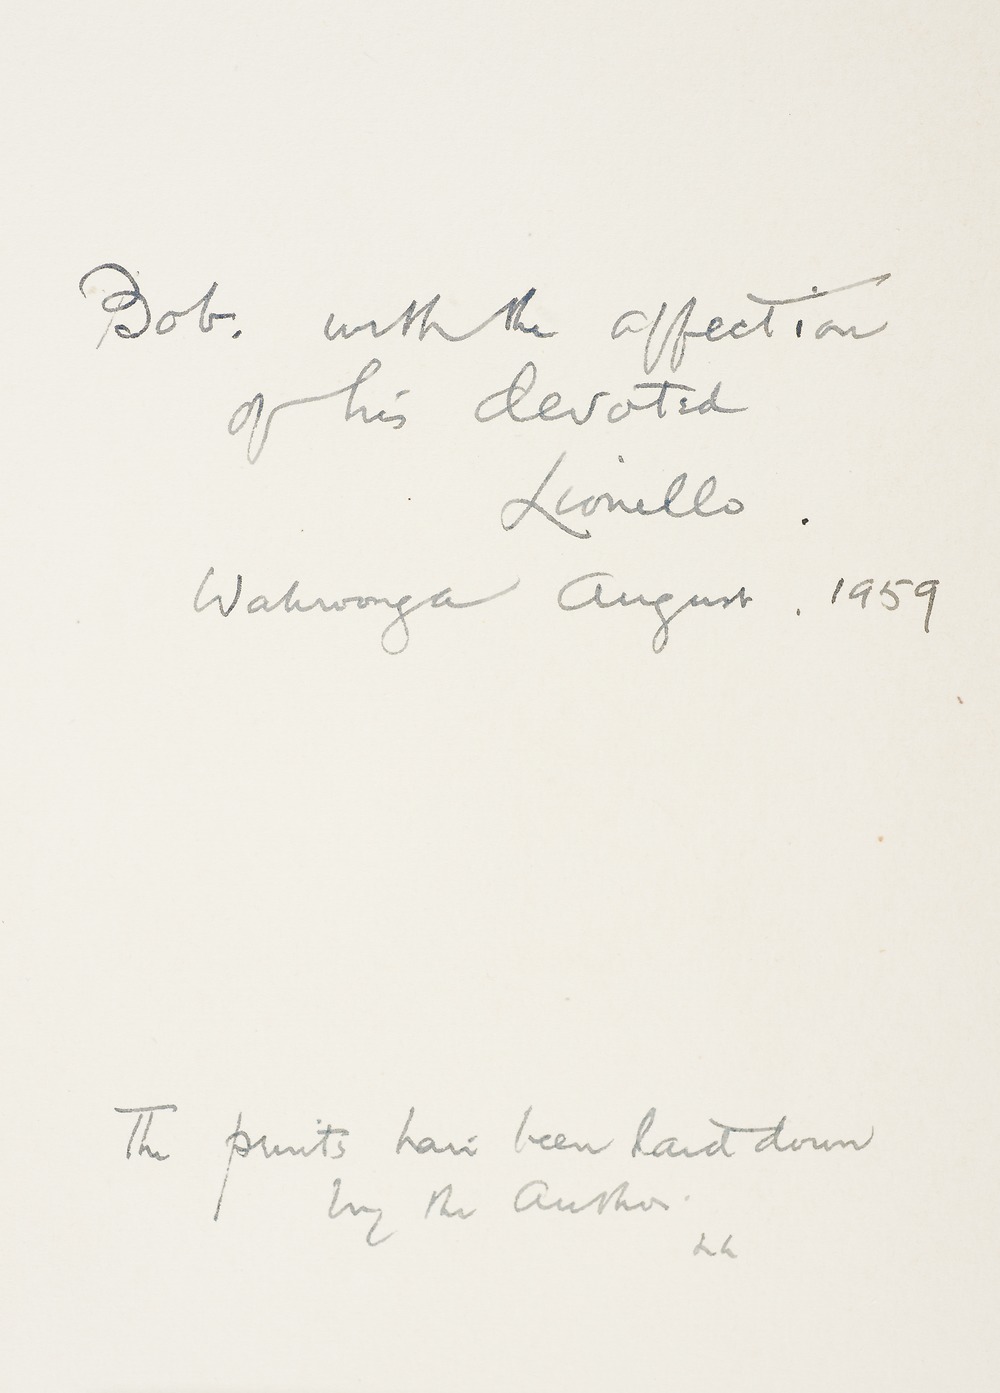 Bob. with the affection
of his devoted
Lionello.
Wahroonga August. 1959
The prints have been laid down
by the Author.
LL